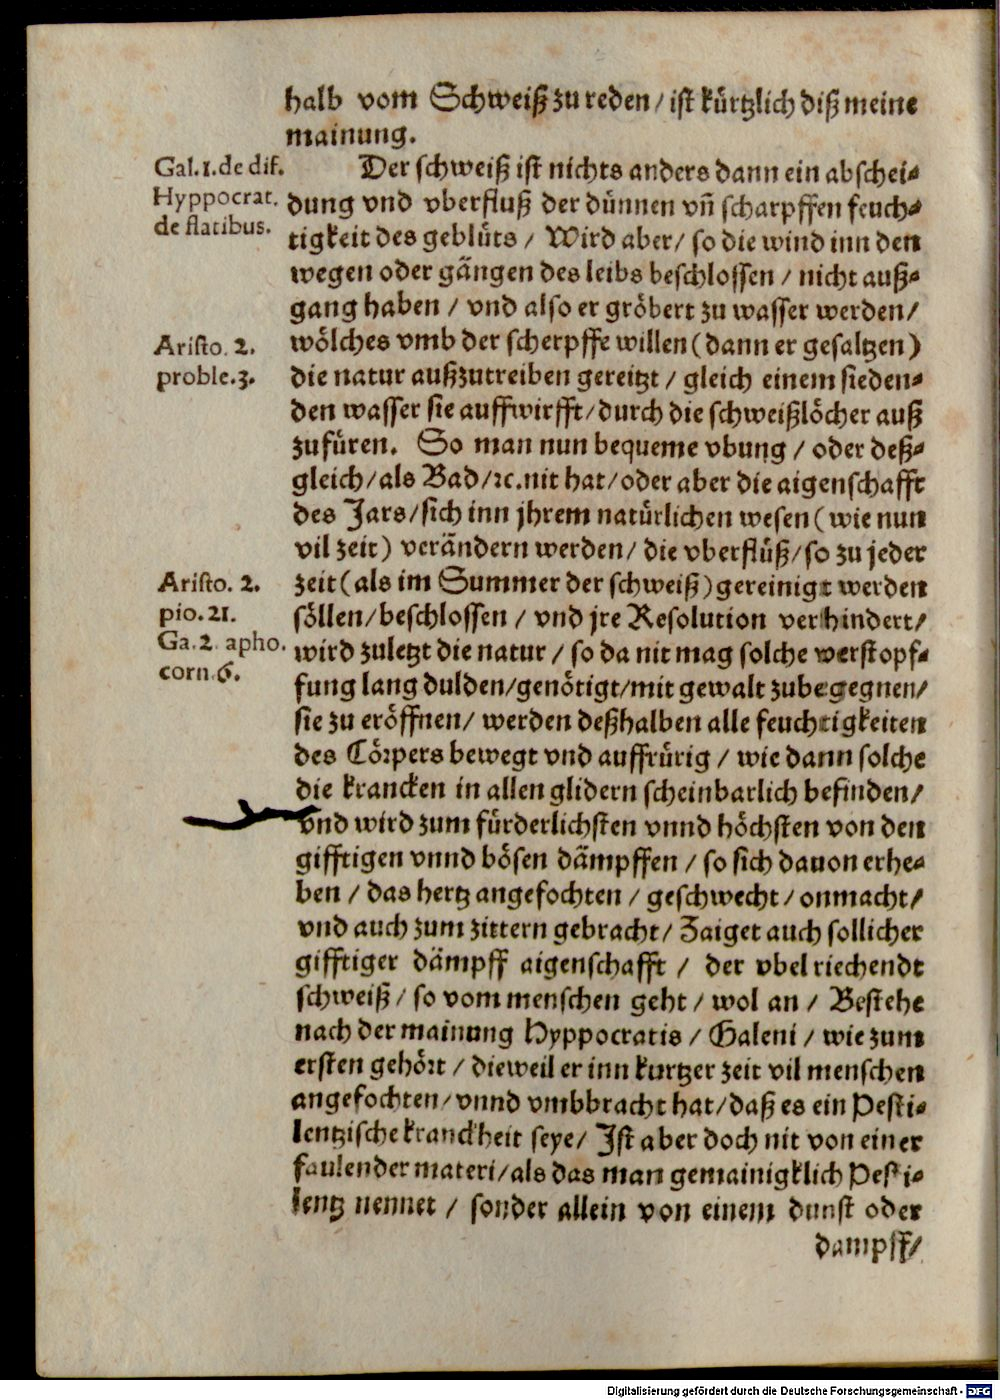 halb vom Schweiß zu reden / ist kürtzlich diß meine
mainung.
Gal. 1. de dif.
Hyppocrat.
de flatibus.
Der schweiß ist nichts anders dann ein abschei-
dung vnd vberfluß der dünnen vñ scharpffen feuch-
tigkeit des geblüts / Wird aber / so die wind inn den
wegen oder gängen des leibs beschlossen / nicht auß-
gang haben / vnd also er gröbert zu wasser werden /
Aristo. 2.
proble. 3.
wölches vmb der scherpffe willen (dann er gesaltzen)
die natur außzutreiben gereitzt / gleich einem sieden-
den wasser sie auffwirfft / durch die schweißlöcher auß
zufüren. So man nun bequeme vbung / oder deß-
gleich / als Bad / ꝛc. nit hat / oder aber die aigenschafft
des Jars / sich inn jhrem natürlichen wesen (wie nun
vil zeit) verändern werden / die vberflüß / so zu jeder
Aristo. 2.
pio. 21.
Ga. 2. apho.
corn. 6.
zeit (als im Summer der schweiß) gereinigt werden
söllen / beschlossen / vnd jre Resolution verhindert /
wird zuletzt die natur / so da nit mag solche verstopf-
fung lang dulden / genötigt / mit gewalt zubegegnen /
sie zu eröffnen / werden deßhalben alle feuchtigkeiten
des Cörpers bewegt vnd auffrürig / wie dann solche
die krancken in allen glidern scheinbarlich befinden /
vnd wird zum fürderlichsten vnnd höchsten von den
gifftigen vnnd bösen dämpffen / so sich dauon erhe-
ben / das hertz angefochten / geschwecht / onmacht /
vnd auch zum zittern gebracht / Zaiget auch sollicher
gifftiger dämpff aigenschafft / der vbel riechendt
schweiß / so vom menschen geht / wol an / Bestehe
nach der mainung Hyppocratis / Galeni / wie zum
ersten gehört / dieweil er inn kurtzer zeit vil menschen
angefochten / vnnd vmbbracht hat / daß es ein Pesti-
lentzische kranckheit seye / Jst aber doch nit von einer
faulender materi / als das man gemainigklich Pesti-
lentz nennet / sonder allein von einem dunst oder
dampff /
Digitalisierung gefördert durch die Deutsche Forschungsgemeinschaft - DFG